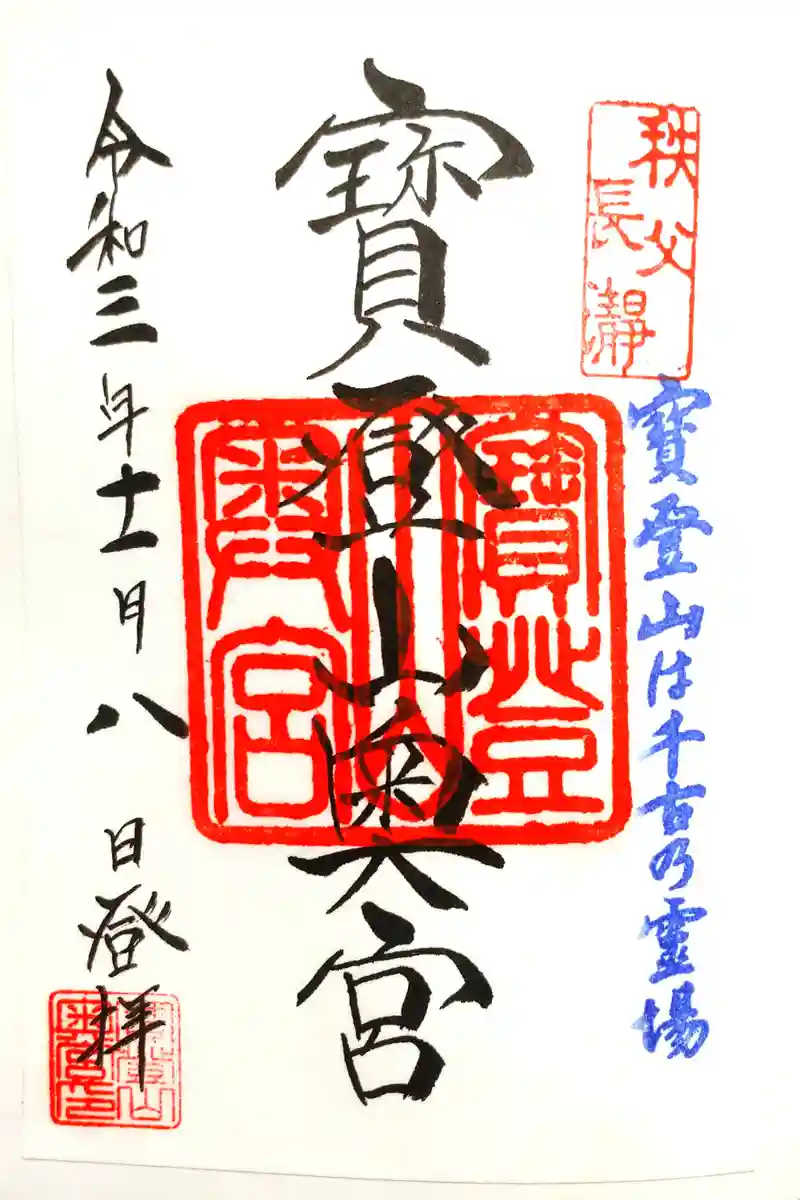 秩父
長瀞
寳登山は千古乃霊場
寳登山奥宮
寳登
山
奥宮
令和三年十一月八日登拝